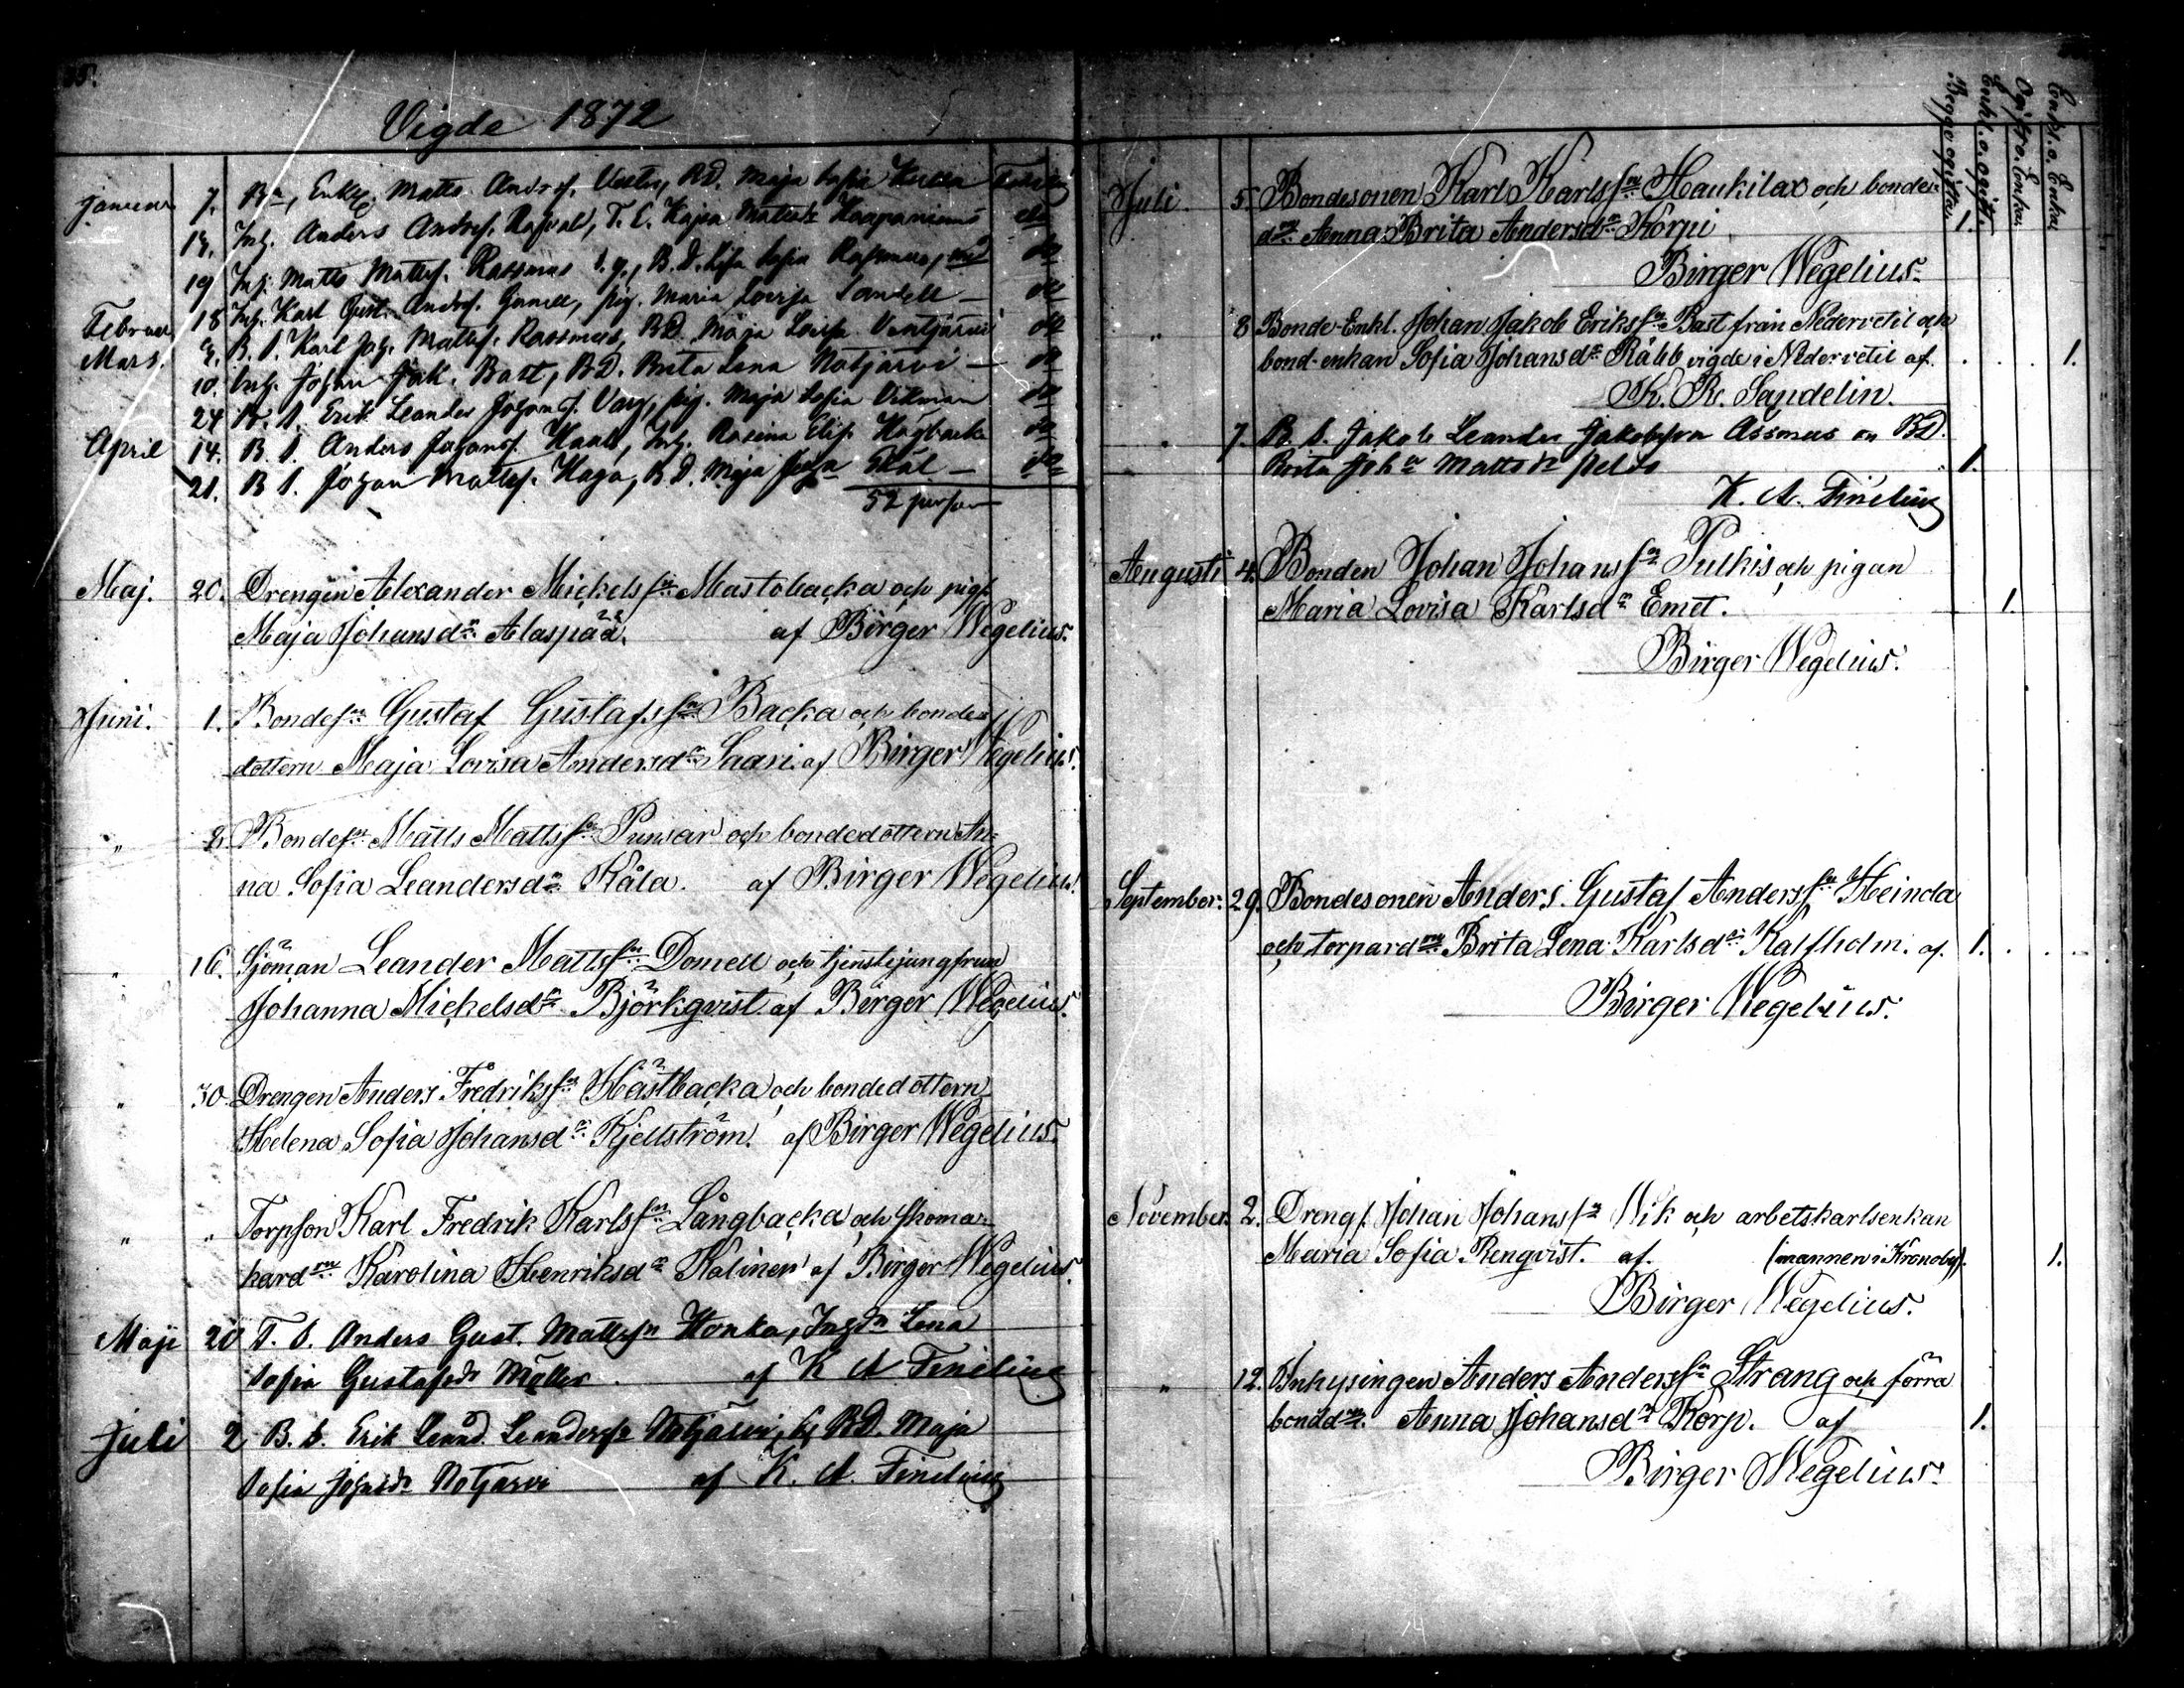 Vigde 1872
Januari 7. Bn, Enkl. Matts Andersf. Vester, B.D. Maja Sofia
14. Inh. Anders Andersf. T. E. Kajsa Mattsdr Haapaniemi do
19 Inh. Matts Mattsf. Rassmus B.D. Lisa Sofia Rassmus, do
Februari 18 Inh. Karl Gust. Andersf. pig. Maria Lovisa Sandell — do
Mars. B. S. Karl Joh. Mattsf. Rassmus, B.D. Maja Lovisa do
10. Inh. Johan Jak. Bast, B.D. Brita Lena Notjärvi — do
24 B. S. Erik Leander Johansf. Varg, pig. Maja Sofia Vikman do
April 14. B. S. Anders Johansf. Inh. Rosina Elis. do
21. B S. Johan Mattsf. Haga, B.D. Maja Skål — do
52 person
Maj. 20. Drengen Alexander Mickelsfn Mastobacka och pig.
Maja Johansdr Alaspää. af Birger Wegelius.
Juni. 1. Bondefn Gustaf Gustafsfn Backa och bonde-
dottern Maja Lovisa Andersdr Saari. af Birger Wegelius.
" 2. Bondefn Matts Mattsfn Punsar och bondedottern An-
na Sofia Leandersdr Kåla. af Birger Wegelius.
" 16. Sjöman Leander Mattsfn Domell och tjenstejungfrun
Johanna Mickelsdr Björkqvist af Birger Wegelius.
" 30. Drengen Anders Fredriksfn Hästbacka och bondedottern
Helena Sofia Johansdr Kjellström. af Birger Wegelius.
" " Torpson Karl Fredrik Karlsfn Långbacka och skoma-
kardrn Karolina Henriksdr Kalinen af Birger Wegelius.
Maji 20 T. S. Anders Gust. Mattsfn Honka, Ingdn Lena
Sofia Gustafsdr Möller af K A Finelius
Juli 2 B. S. Erik Leand. Leandersfn Notjärvi, B.D. Maja
Sofia Johsdr Notjärvi af K. A. Finelius
Begge ogifta.
Enkl. o. ogift.
Ogift o. Enka
Enkl. o. Enka
Juli. 5. Bondesonen Karl Karlsfn Haukilax och bonde-
drn Anna Brita Andersdr Korpi 1.
Birger Wegelius.
" 8 Bonde-Enkl. Johan Jakob Eriksfn Bast från Nedervetil och
bond-enkan Sofia Johansdr Råbb vigde i Nedervetil af. 1.
K. R. Sandelin.
" 7. B. S. Jakob Leander Jakobsson Assmus o. BD.
Brita Joha Mattsdr 1.
K. A. Finelius
Augusti 4. Bonden Johan Johansfn Pulkis och pigan
Maria Lovisa Karlsdr Emet. 1.
Birger Wegelius.
September. 29. Bondesonen Anders Gustaf Andersfn Heinda
och torpardrn Brita Lena Karlsdr Kalfholm. af. 1.
Birger Wegelius.
November. 2. Dreng f. Johan Johansfn Wik och arbetskarlsenkan
Maria Sofia Renqvist. af. (mannen i Kronoby). 1.
Birger Wegelius.
" 12. Inhysingen Anders Andersfn Strang och förra
bonddrn. Anna Johansdr Korp. af 1.
Birger Wegelius.